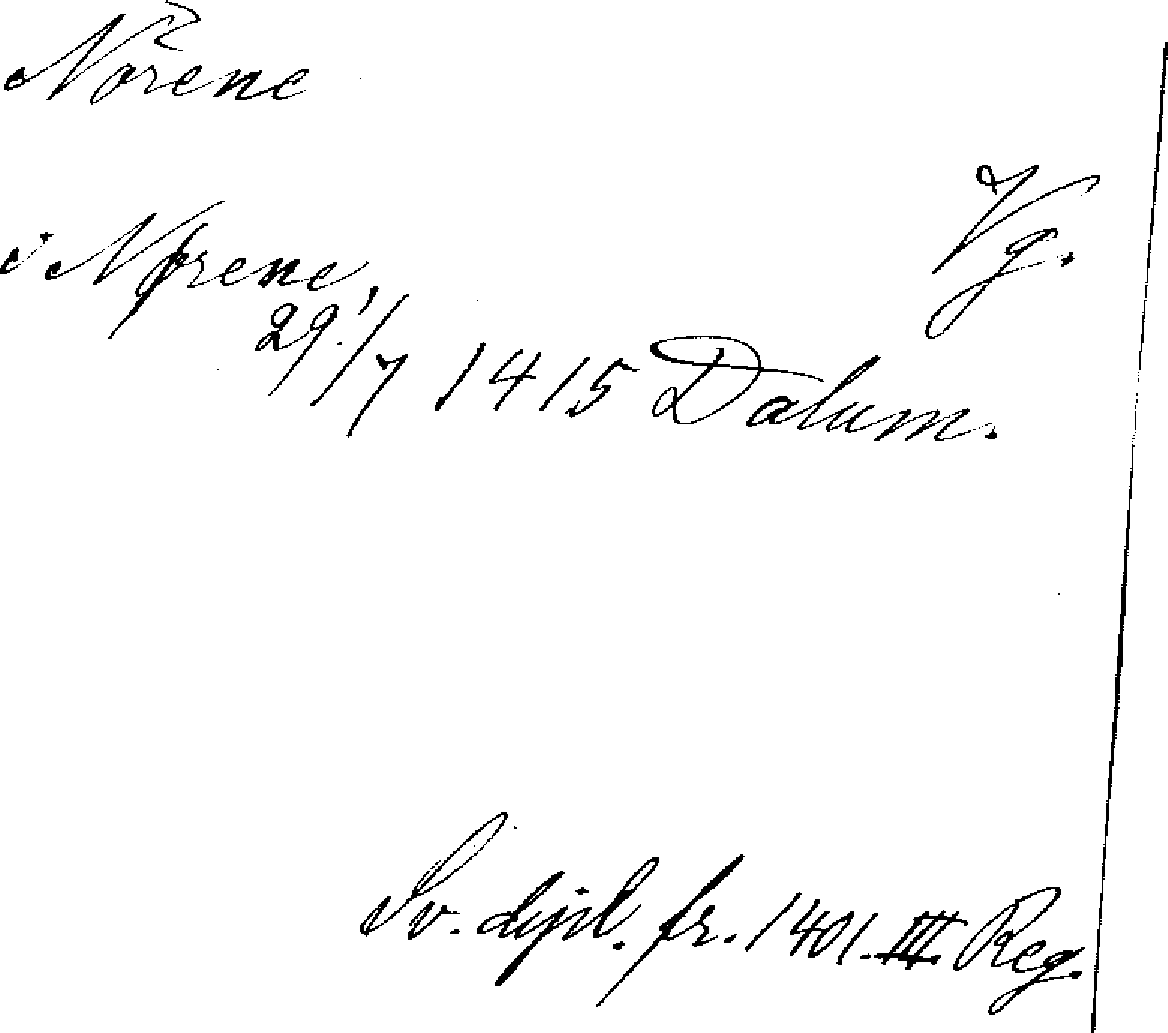 Nørene
Vg.
i Nørene,
29/7 1415 Dalum.
Sv. dipl. fr. 1401. III. Reg.